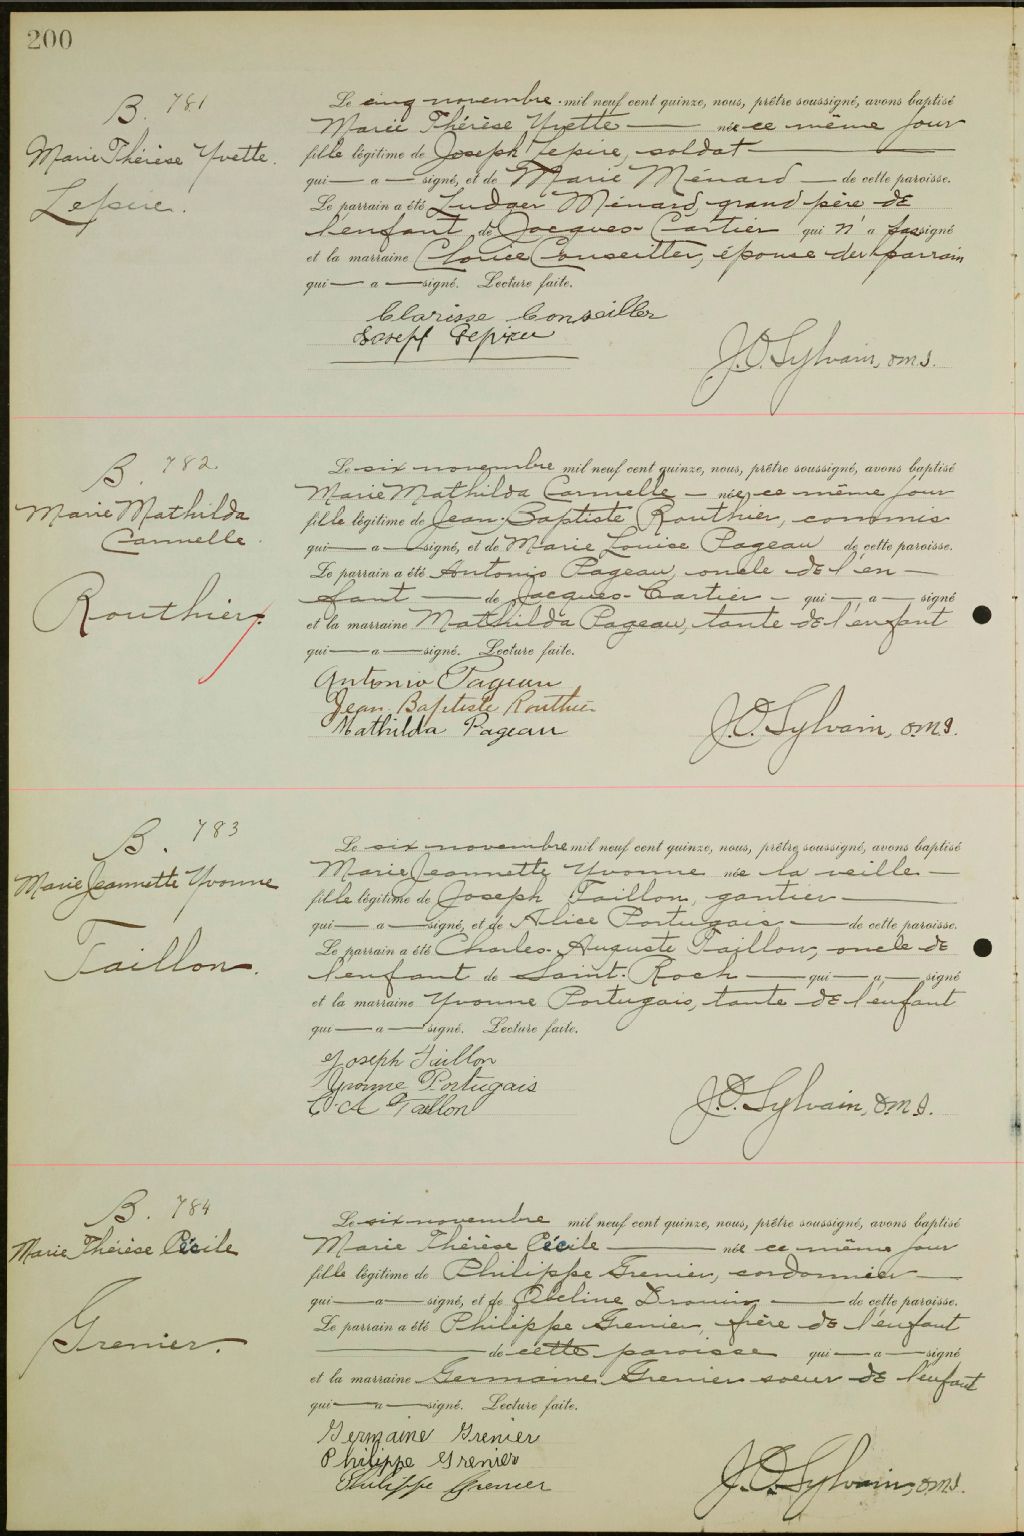 200
B. 781
Marie Thérèse Yvette.
Lepire.
Le cinq novembre mil neuf cent quinze, nous, prêtre soussigné, avons baptisé
Marie Thérèse Yvette née ce même jour
fille légitime de Joseph Lepire, soldat
qui a signé, et de Marie Ménard de cette paroisse.
Le parrain a été Ludger Ménard, grand père de
l'enfant de Jacques-Cartier qui n'a pas signé
et la marraine Clorice Conseiller, épouse du parrain
qui a signé. Lecture faite.
Clarisse Conseiller
Josepf
J.O. Sylvain, o.m.I.
B. 782.
Marie Mathilda
Carmelle.
Routhier.
Le six novembre mil neuf cent quinze, nous, prêtre soussigné, avons baptisé
Marie Mathilda Carmelle née, ce même jour
fille légitime de Jean-Baptiste Routhier, commis
qui a signé, et de Marie Louise Pageau de cette paroisse.
Le parrain a été Antonio Pageau, oncle de l'en-
fant de Jacques-Cartier qui a signé
et la marraine Mathilda Pageau, tante de l'enfant
qui a signé. Lecture faite.
Antonio Pageau
Jean Baptiste Routhier
Mathilda Pageau
J.O. Sylvain, o.m.I.
B. 783
Marie Jeannette Yvonne
Taillon.
Le six novembre mil neuf cent quinze, nous, prêtre soussigné, avons baptisé
Marie Jeannette Yvonne née la veille
fille légitime de Joseph Taillon, gantier
qui a signé, et de Alice Portugais de cette paroisse.
Le parrain a été Charles-Auguste Taillon, oncle de
l'enfant de Saint-Roch qui a signé
et la marraine Yvonne Portugais, tante de l'enfant
qui a signé. Lecture faite.
Joseph Taillon
Yvonne Portugais
C. A Taillon
J.O. Sylvain, o.m.I.
B. 784
Marie Thérèse Cécile
Grenier.
Le six novembre mil neuf cent quinze, nous, prêtre soussigné, avons baptisé
Marie Thérèse Cécile née ce même jour
fille légitime de Philippe Grenier, cordonnier
qui a signé, et de Obeline Drouin de cette paroisse.
Le parrain a été Philippe Grenier, frère de l'enfant
de cette paroisse qui a signé
et la marraine Germaine Grenier soeur de l'enfant
qui a signé. Lecture faite.
Germaine Grenier
Philippe Grenier
Philippe Grenier
J.O. Sylvain, o.m.I.